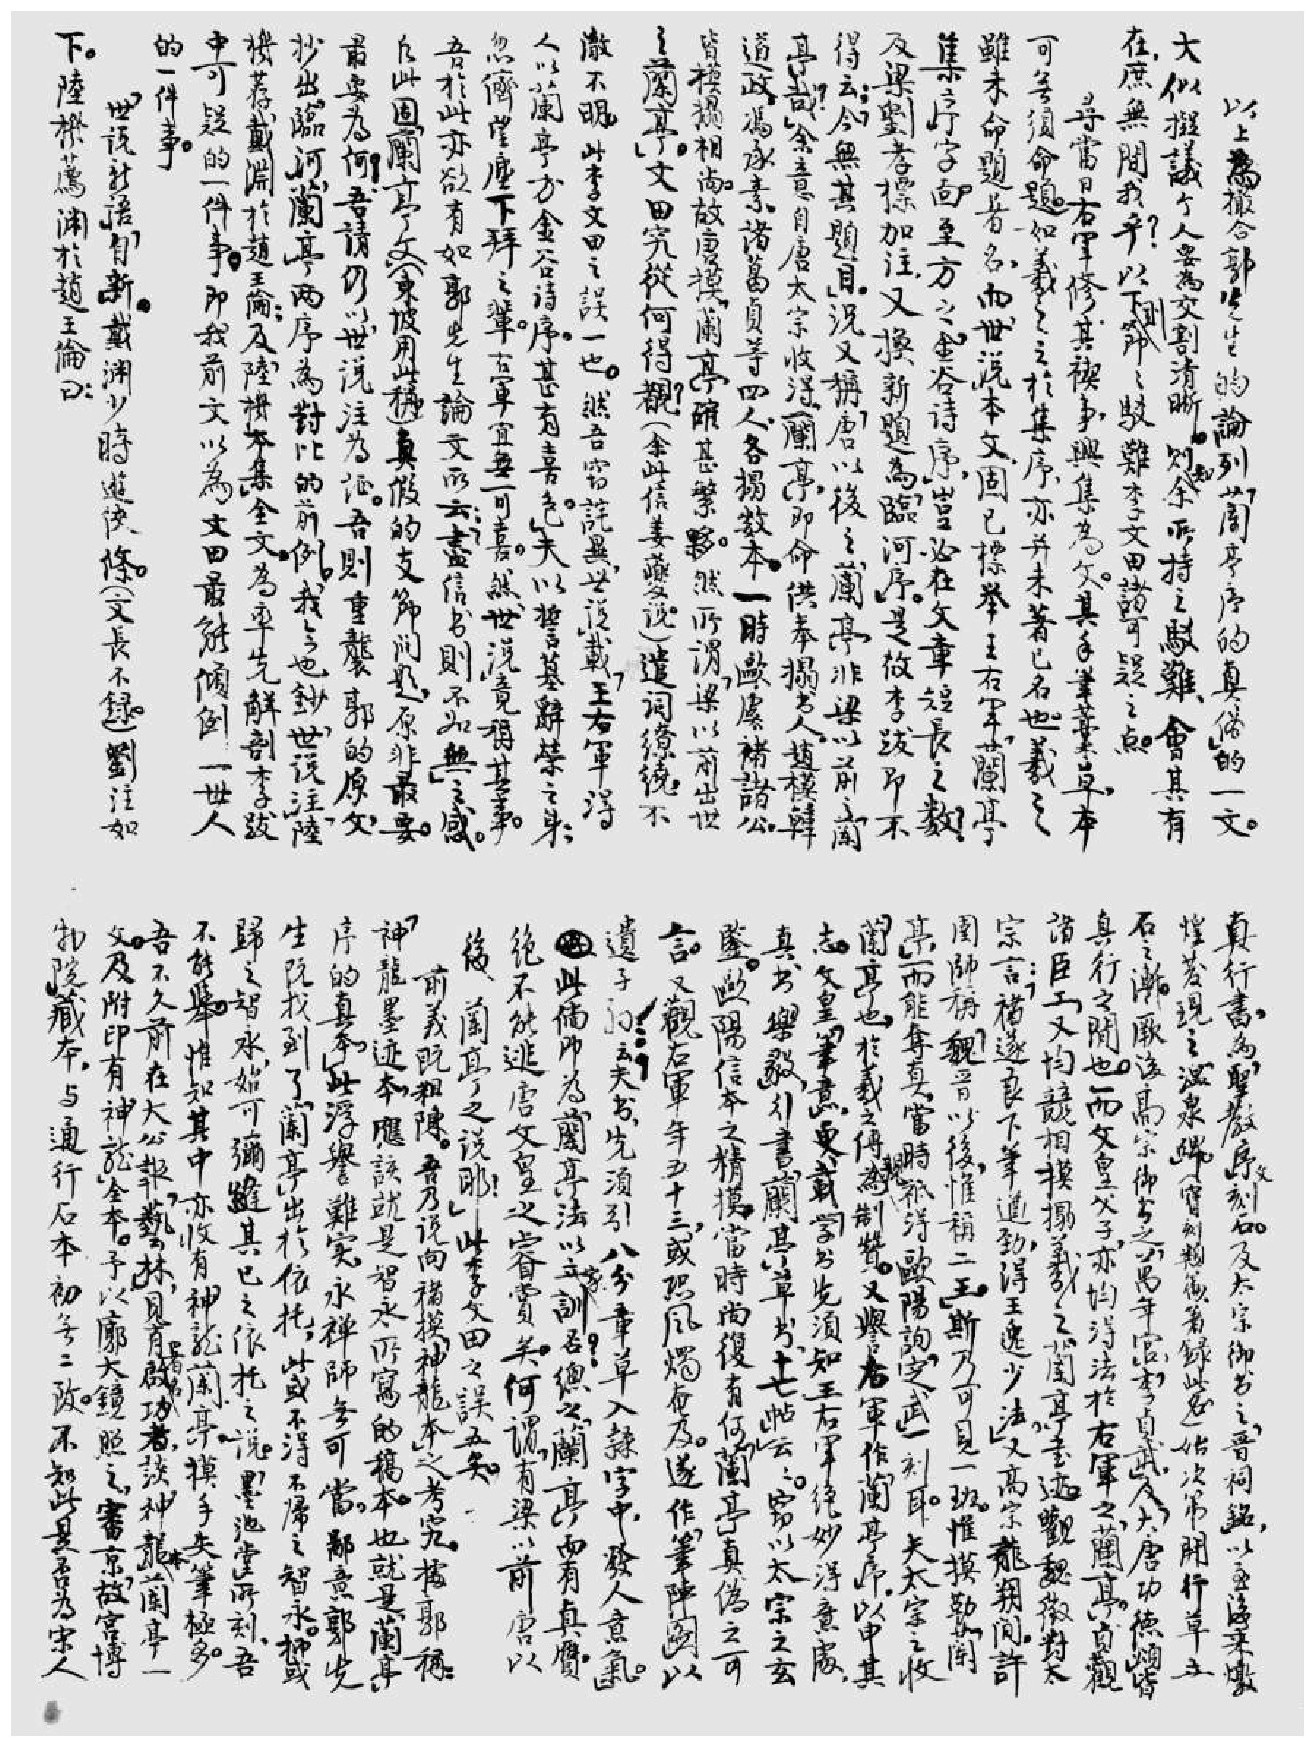 以上為撮合郭先生的論列“蘭亭序的真偽”的一文。
大似擬議個人要為交割清晰。則余所持之駁難、會其有
在、庶無間我乎？以下節之駁難李文田諸可疑之点。
尋當日右軍修其禊事，興集為文。其手筆葉草，本
可無須命題。如羲之之於集序，亦并未著己名也。羲之
雖未命題署名，而世說本文，固已標舉王右軍蘭亭
集序字向。至方之金谷詩序，豈必在文章短長之數？
及梁劉孝標加注，又換新題為臨河序。是故李跋即不
得云：今無其題目。況又稱唐以後之蘭亭，非梁以前之蘭
亭哉？余意自唐太宗收得蘭亭，即命供奉搨書人趙模韓
道政、馮承素、諸葛貞等四人，各搨數本。一時歐虞褚諸公
皆模搨相尚。故唐摸蘭亭確甚繁夥。然所謂梁以前出世
之蘭亭。文田究從何得觀？（余此信姜夔說。）遣詞繚繞，不
澈不明。此李文田之誤一也。然吾窃詫異世說載王右軍得
人以蘭亭方金谷詩序。甚有喜色。夫以誓墓辭榮之身；
忽儕望塵下拜之輩。右軍宜無一可喜。然世說竟稱其事。
吾於此亦欲有如郭先生論文所云：盡信书則不如無之感。
凡此固蘭亭文（東坡用此稱）真假的支節问题，原非最要。
最要為何？吾請仍以世說注為証。吾則重襲郭的原文，
抄出臨河蘭亭兩序為對比的前例。我今也鈔世說注陸
機荐戴淵於趙王倫；及陸機本集全文。為率先解剖李跋
中可疑的一件事。即我前文以為文田最能傾倒一世人
的一件事。
世說新語自新。戴渊少時遊俠條。（文長不録。）劉注如
下。陸機薦渊於趙王倫曰：
真行書，為聖教序文刻石。及太宗御书之晋祠銘，以至後来燉
煌發現之溫泉碑，（寶刻類篇著録此名）始次第開行草立
石之漸。厥後高宗御书之萬年宮、李貞武及大唐功德頌皆
真行之間也。而文皇父子，亦均得法於右軍之蘭亭。貞觀
諸臣工，又均競相摸搨羲之蘭亭書迹。觀魏徵對太
宗言：褚遂良下筆遒勁，得王逸少法。又高宗龍朔間。許
圉師稱魏晋以後，惟稱二王，斯乃可見一班。惟摸勒蘭
亭，而能奪真，當時祇得歐陽詢定武一刻耳。夫太宗之收
蘭亭也，於羲之傳親為制贊。又譽右軍作蘭亭序，以申其
志。文皇筆意，更載学书先須知王右軍绝妙得意處，
真书樂毅，行書蘭亭，草书十七帖云。窃以太宗之玄
鑒。歐陽信本之精摸，當時尚復有何蘭亭真偽之可
言。又觀右軍年五十三，或恐風燭奄及。遂作筆陣圖以
遺子孙云：夫书，先須引八分章草入隸字中，發人意氣。
此倘即為蘭亭法以立家訓否？總之蘭亭而有真贋。
绝不能逃唐文皇之睿賞矣。何謂有梁以前唐以
後蘭亭之说耶！此李文田之誤五矣。
前義既粗陳。吾乃說向褚摸神龍本之考究。據郭稱：
“神龍墨迹本，應該就是智永所寫的稿本。也就是蘭亭
序的真本。”此浮譽難实。永禅師無可當。鄙意郭先
生既找到了蘭亭出於依托，此或不得不归之智永。抑或
歸之智永，始可彌缝其已之依托之說。墨池堂所刻，吾
不能舉。惟知其中亦收有神龍蘭亭。摸手失筆極多。
吾不久前在大公報藝林，見有署名啟功者，談神龍本蘭亭一
文。及附印有神龍全本。予以廓大鏡照之，審京故宫博
物院藏本，与通行石本初無二致。不知此是否為宋人